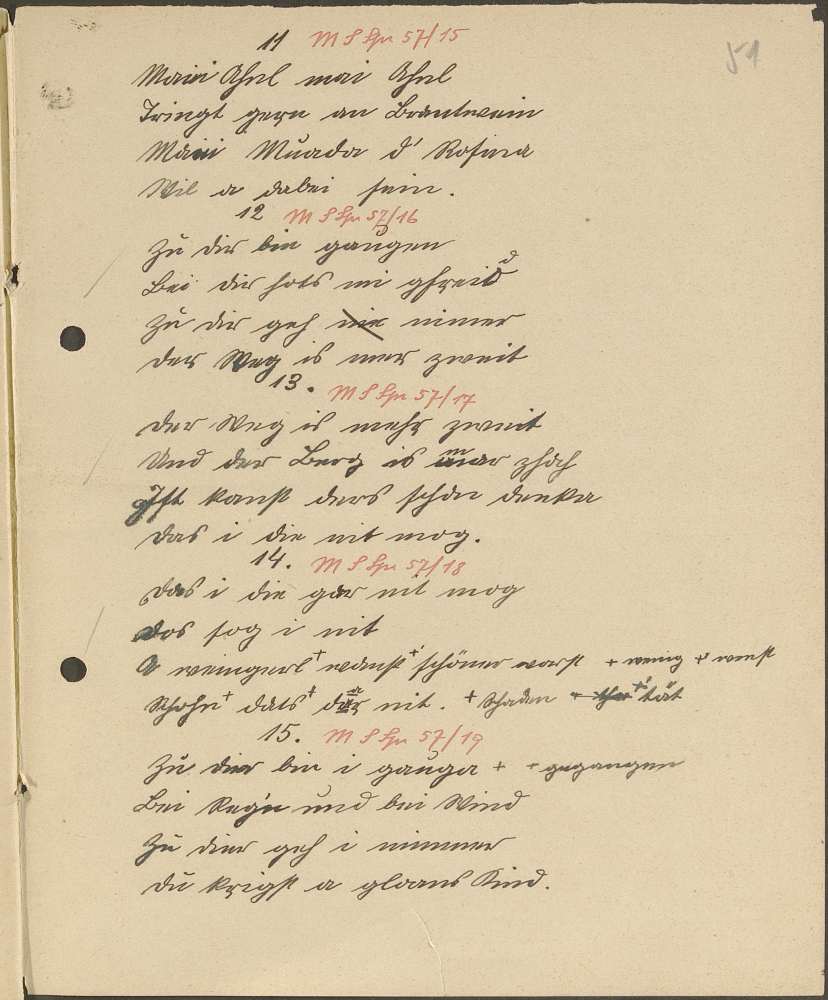 11 M S Spr 57/15
51
Maini Ahnl mai Ahnl
Tringt gern an Brantwein
Maini Muada d' Rosina
Wil a dabei sein.
12 M S Spr 57/16
Zu dir bin gangen
Bei dir hots mi gfreid
Zu dir geh nie nimer
der Weg is mer zweit
13. M S Spr 57/17
der Weg is mehr zweit
Und der Berg is mar zhöch
Ist kanst ders schon denka
das i die nit mog.
14. M S Spr 57/18
Das i die gar nit mog
Dos sog i nit
A weingerl+ wanst+ schöner warst + wenig + wenst
Schohn+ dats+ dar nit. + Schaden + tät
15. M S Spr 57/19
Zu dier bin i ganga + + gegangen
Bei Reg'n und bei Wind
Zu dier geh i nimmer
du krigst a gloans Kind.